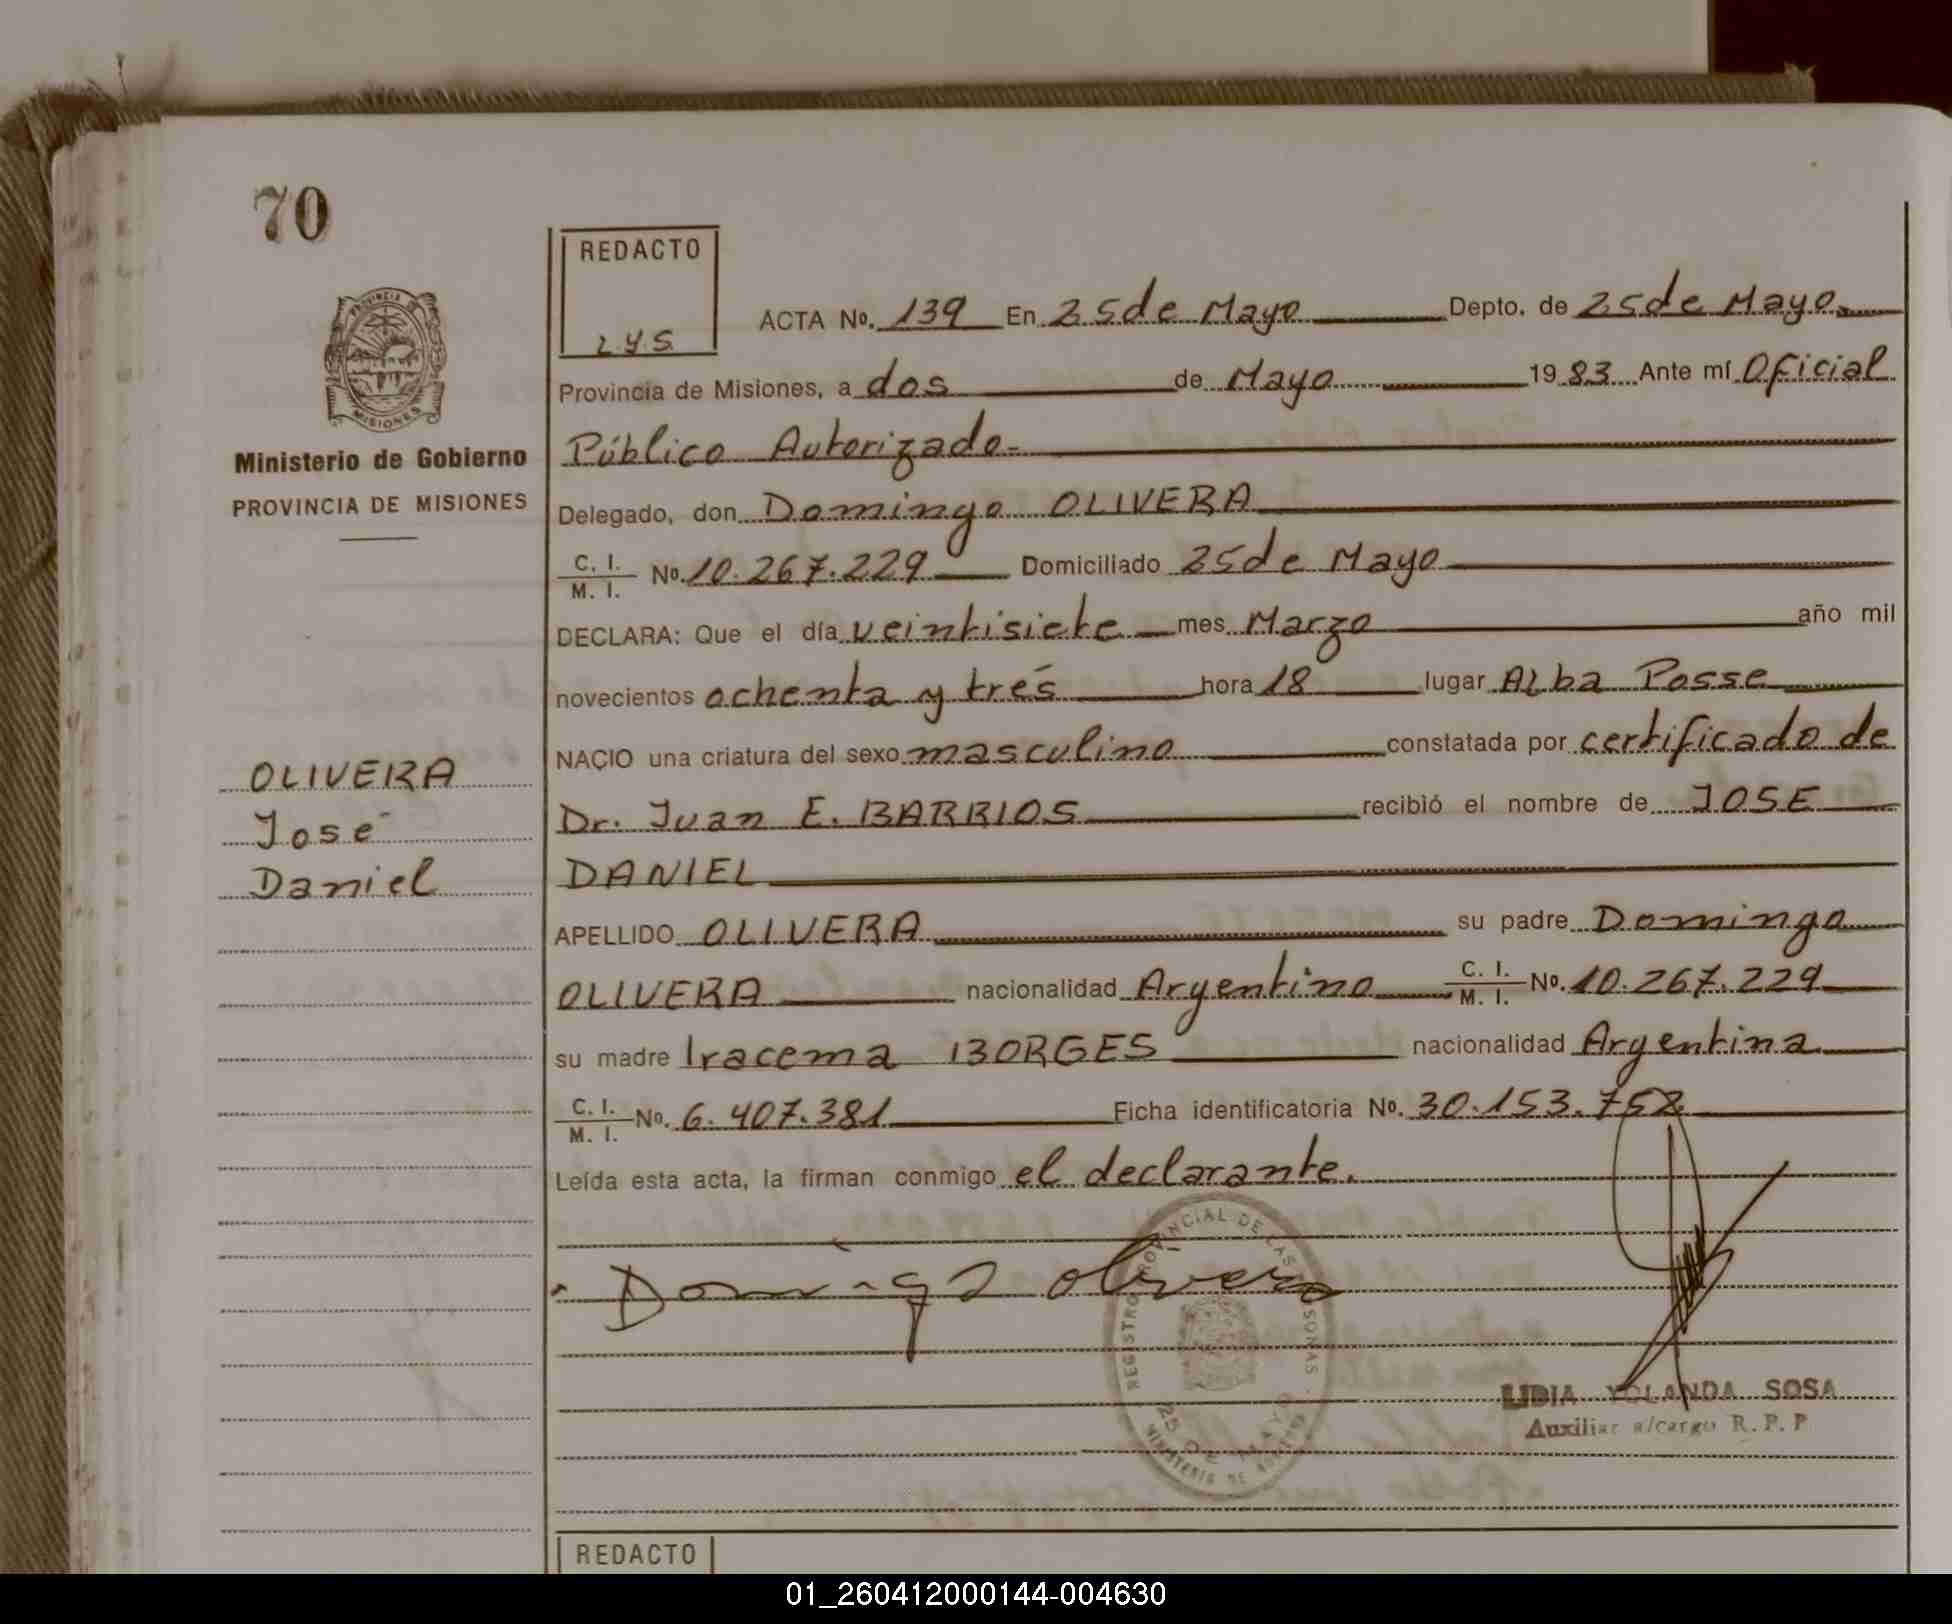 70
REDACTO
L.Y.S.
PROVINCIA DE
MISIONES
Ministerio de Gobierno
PROVINCIA DE MISIONES
ACTA No. 139 En 25 de Mayo Depto. de 25 de Mayo.
Provincia de Misiones, a dos de Mayo 1983 Ante mí Oficial
Público Autorizado.
Delegado, don Domingo OLIVERA
C. I.
M. I. No. 10.267.229 Domiciliado 25 de Mayo
DECLARA: Que el día veintisiete mes Marzo año mil
novecientos ochenta y trés hora 18 lugar Alba Posse
NACIO una criatura del sexo masculino constatada por certificado de
Dr. Juan E. BARRIOS recibió el nombre de JOSE
DANIEL
APELLIDO OLIVERA su padre Domingo
OLIVERA nacionalidad Argentino C. I. M. I. No. 10.267.229
su madre Iracema BORGES nacionalidad Argentina
C. I.
M. I. No. 6.407.381 Ficha identificatoria No. 30.153.758
Leída esta acta, la firman conmigo el declarante.
OLIVERA
José
Daniel
Domingo olivera
REGISTRO PROVINCIAL DE LAS PERSONAS
25 DE MAYO
MINISTERIO DE GOBIERNO
LIDIA YOLANDA SOSA
Auxiliar a/cargo R. P. P
REDACTO
01_260412000144-004630